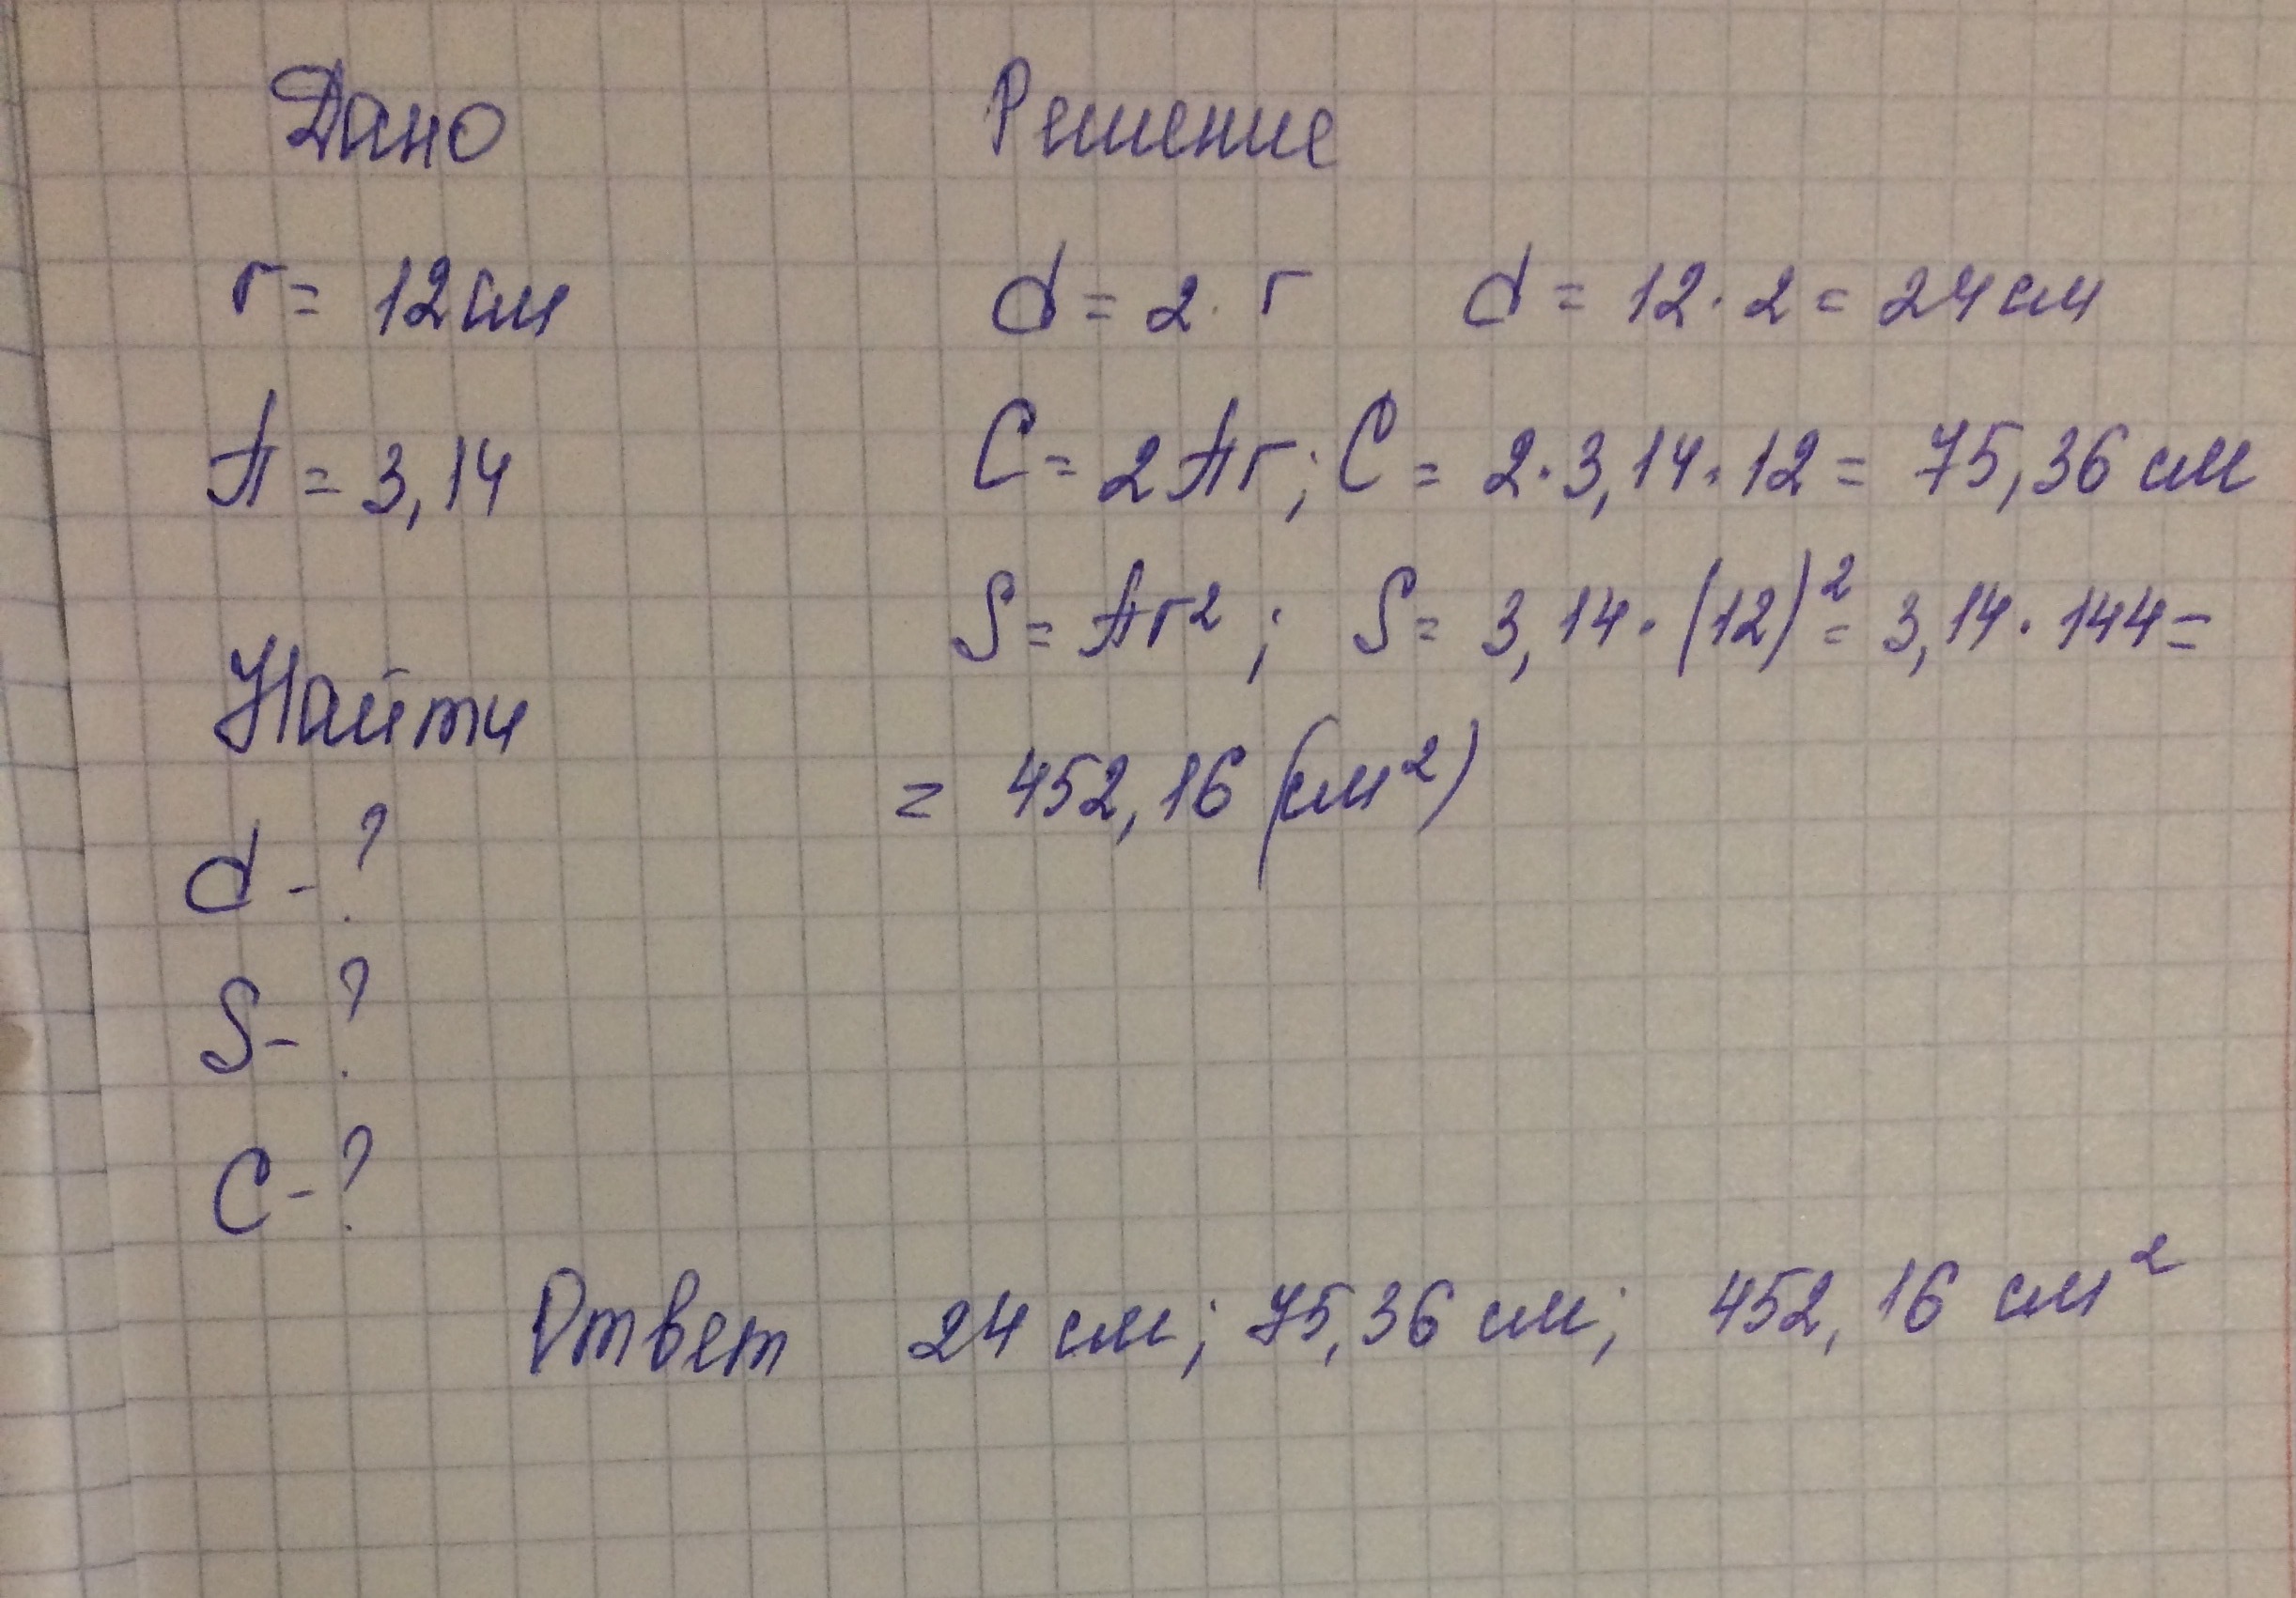 Дано
r = 12 см
π = 3,14
Найти
d - ?
S - ?
C - ?
Решение
d = 2 · r   d = 12 · 2 = 24 см
C = 2πr; C = 2 · 3,14 · 12 = 75,36 см
S = πr²; S = 3,14 · (12)² = 3,14 · 144 =
= 452,16 (см²)
Ответ 24 см; 75,36 см; 452,16 см²